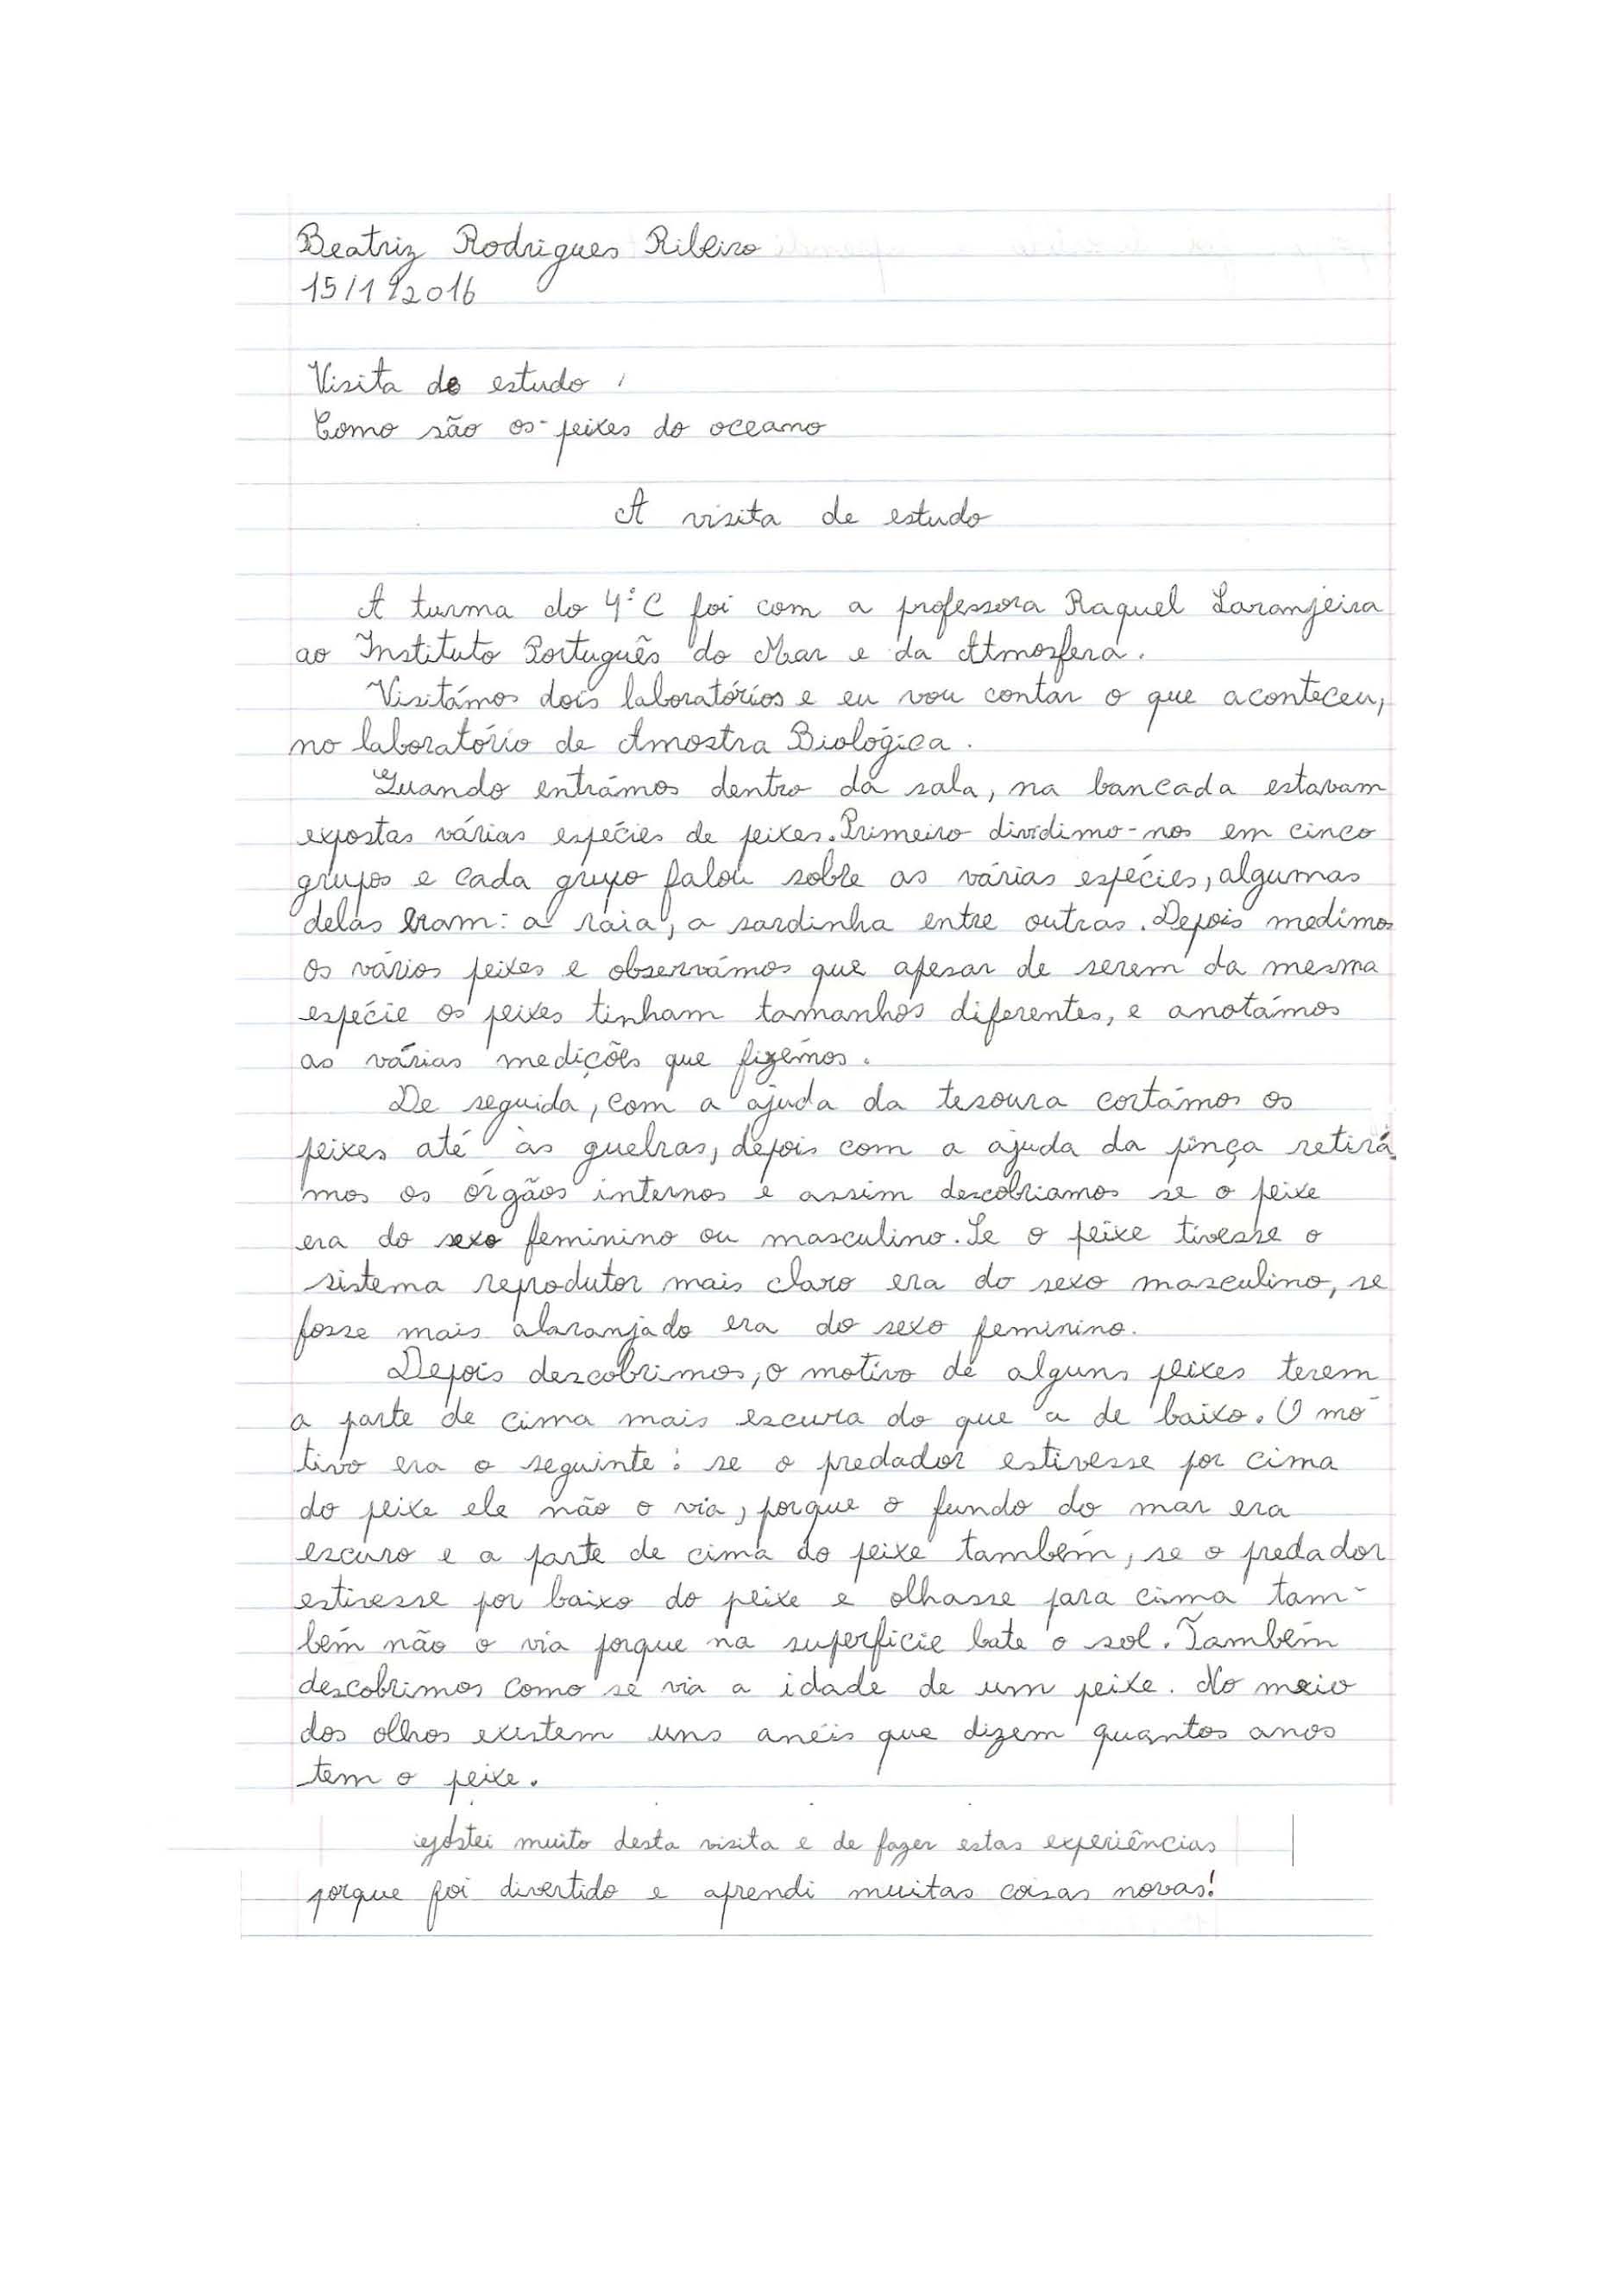 Beatriz Rodrigues Ribeiro
15/11/2016
Visita de estudo :
Como são os peixes do oceano
A visita de estudo
A turma do 4º C foi com a professora Raquel Laranjeira
ao Instituto Português do Mar e da Atmosfera.
Visitámos dois laboratórios e eu vou contar o que aconteceu,
no laboratório de Amostra Biológica.
Quando entrámos dentro da sala, na bancada estavam
expostas várias espécies de peixes. Primeiro dividimo-nos em cinco
grupos e cada grupo falou sobre as várias espécies, algumas
delas eram: a raia, a sardinha entre outras. Depois medimos
os vários peixes e observámos que apesar de serem da mesma
espécie os peixes tinham tamanhos diferentes, e anotámos
as várias medições que fizémos.
De seguida, com a ajuda da tesoura cortámos os
peixes até às guelras, depois com a ajuda da pinça retirá-
mos os órgãos internos e assim descobriamos se o peixe
era do sexo feminino ou masculino. Se o peixe tivesse o
sistema reprodutor mais claro era do sexo masculino, se
fosse mais alaranjado era do sexo feminino.
Depois descobrimos, o motivo de alguns peixes terem
a parte de cima mais escura do que a de baixo. O mo-
tivo era o seguinte: se o predador estivesse por cima
do peixe ele não o via, porque o fundo do mar era
escuro e a parte de cima do peixe também, se o predador
estivesse por baixo do peixe e olhasse para cima tam-
bém não o via porque na superfície bate o sol. Também
descobrimos como se via a idade de um peixe. No meio
dos olhos existem uns anéis que dizem quantos anos
tem o peixe.
gostei muito desta visita e de fazer estas experiências
porque foi divertido e aprendi muitas coisas novas!